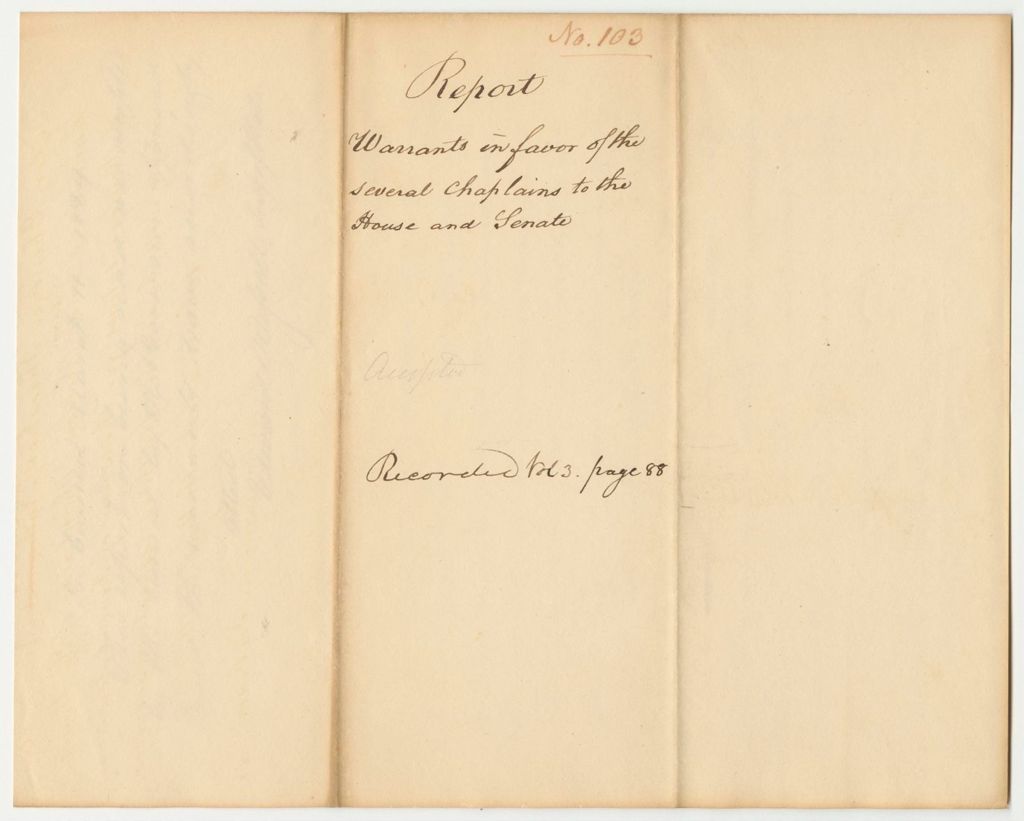 No. 103
Report
Warrants in favor of the
several Chaplains to the
House and Senate
Accepted
Recorded Vol 3. page 88